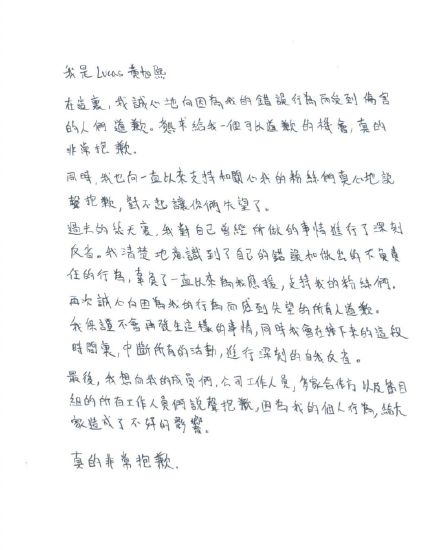 我是 Lucas 黃旭熙
在這裏，我誠心地向因為我的錯誤行為而受到傷害
的人們道歉。懇求給我一個可以道歉的機會，真的
非常抱歉.
同時，我也向一直以來支持和關心我的粉絲們真心地說
聲抱歉，對不起讓你們失望了。
過去的幾天裏，我對自己曾經所做的事情進行了深刻
反省。我清楚地意識到了自己的錯誤和做出的不負責
任的行為，辜負了一直以來為我應援，支持我的粉絲們.
再次誠心向因為我的行為而感到失望的所有人道歉。
我保證不會再發生這樣的事情，同時我會在接下來的這段
時間裏，中斷所有的活動，進行深刻的自我反省。
最後，我想向我的成員們、公司工作人員，各家合作方以及節目
組的所有工作人員們說聲抱歉，因為我的個人行為，給大
家造成了不好的影響。
真的非常抱歉.